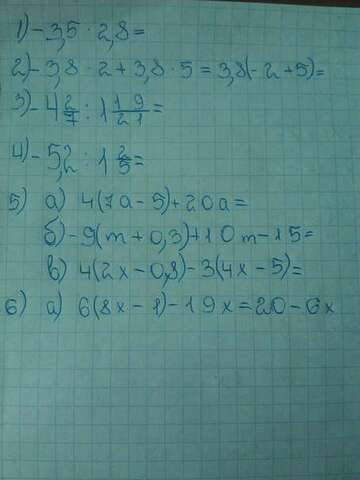 1) -3,5 · 2,8 =
2) -3,8 · 2 + 3,8 · 5 = 3,8(-2+5)=
3) -4 2/7 : 1 19/21 =
4) -5,2 : 1 2/5 =
5) а) 4(7а-5)+20а=
б) -9(m+0,3)+10m-15=
в) 4(2х-0,8)-3(4х-5)=
6) а) 6(8х-1)-19х=20-6х